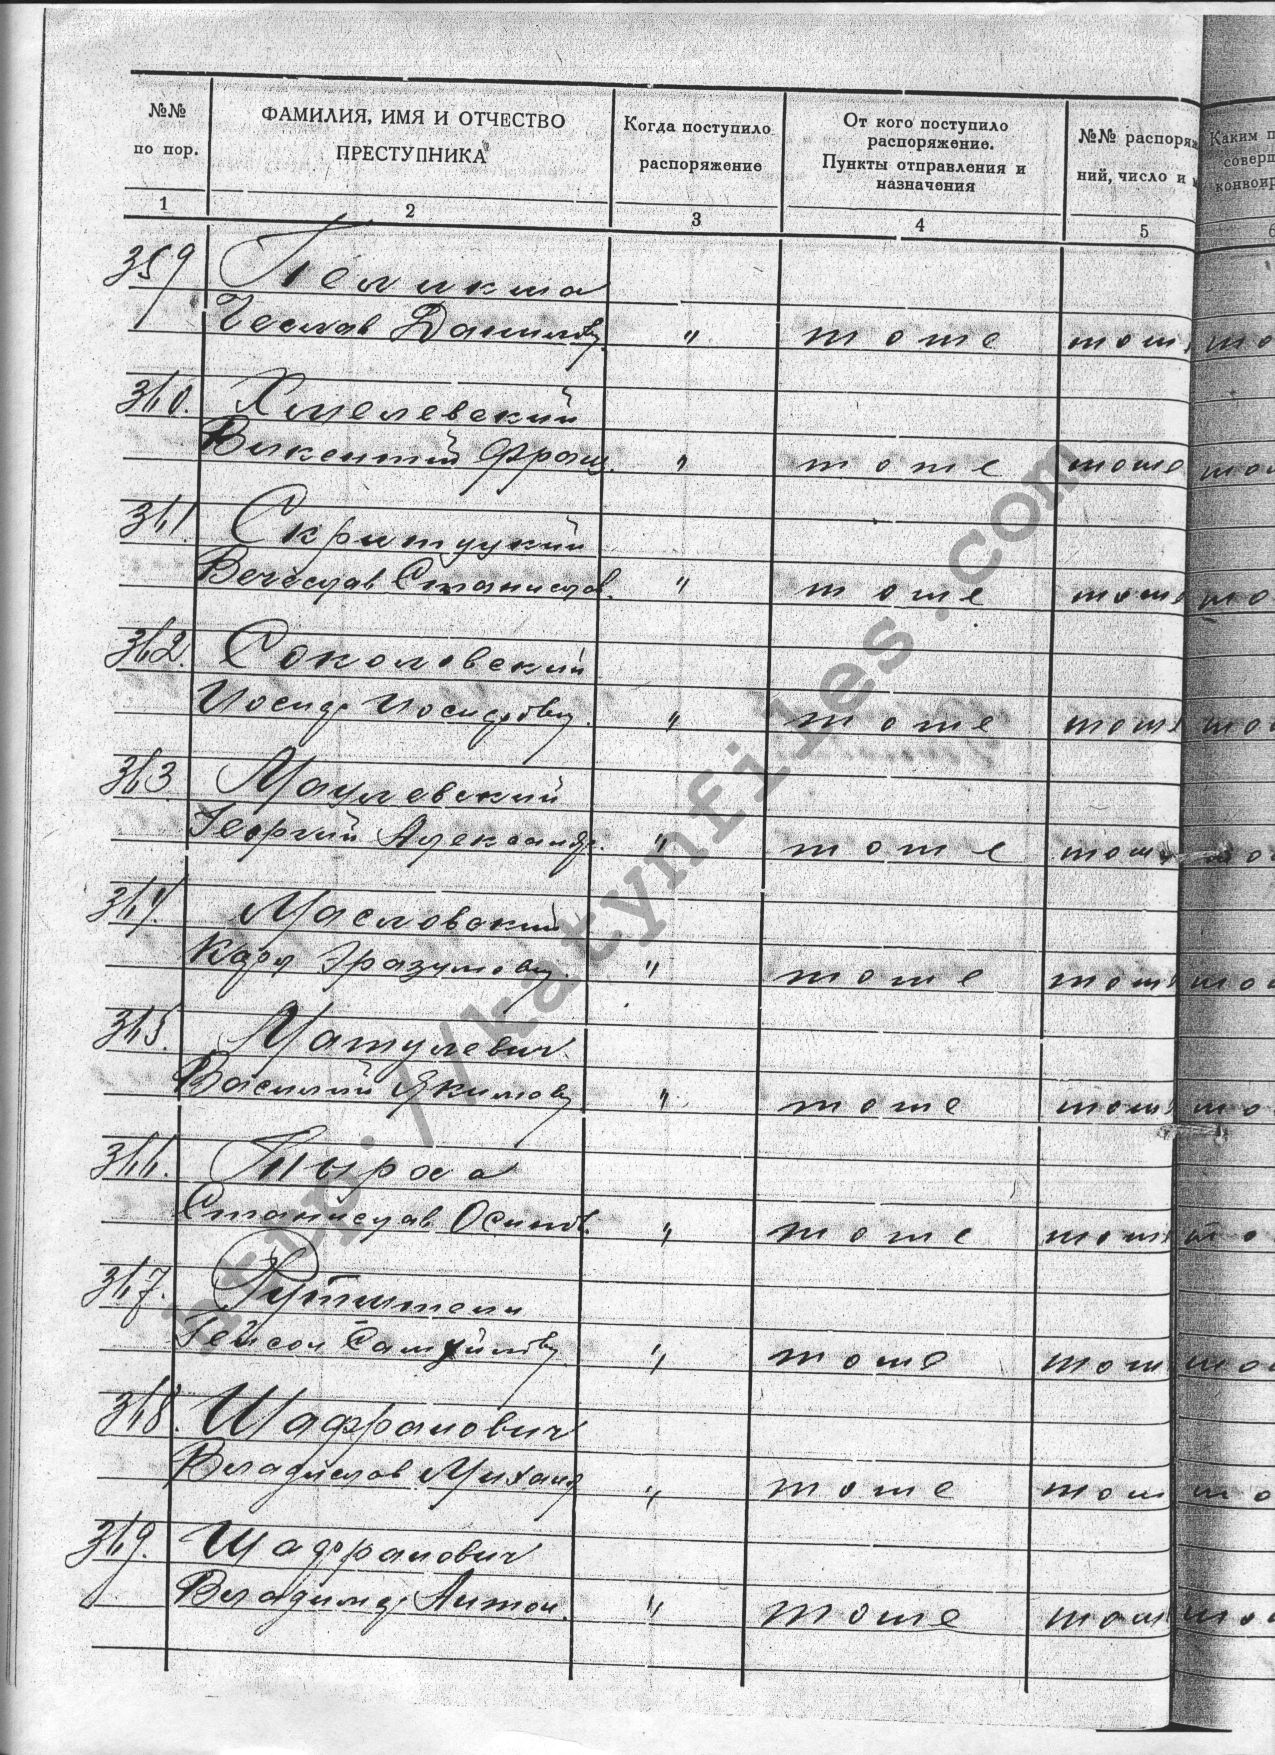 №№ по пор.
ФАМИЛИЯ, ИМЯ И ОТЧЕСТВО ПРЕСТУПНИКА
Когда поступило распоряжение
От кого поступило распоряжение. Пункты отправления и назначения
№№ распоряже
ний, число и
Каким п
соверш
конвоир
1 2 3 4 5 6
359
Чеслав Данилов. " тоже тоже то
360. Хмелевский
Викентий Франц. " тоже тоже тож
361.
Вечеслав Станислав. " тоже тоже то
362. Соколовский
Иосиф Иосифович. " тоже тоже тож
363
Георгий Александр. " тоже тоже то
364. Масловский
Карл Эразмович. " тоже тоже тож
365. Матулевич
Василий Якимович " тоже тоже то
366. Пырса
Станислав Осипов. " тоже тоже то
367.
Самуйлович " тоже тож тож
368. Шафранович
Владислав Михайл " тоже тож то
369. Шафранович
Владимир Антон. " тоже тоже тож
http://katynfiles.com